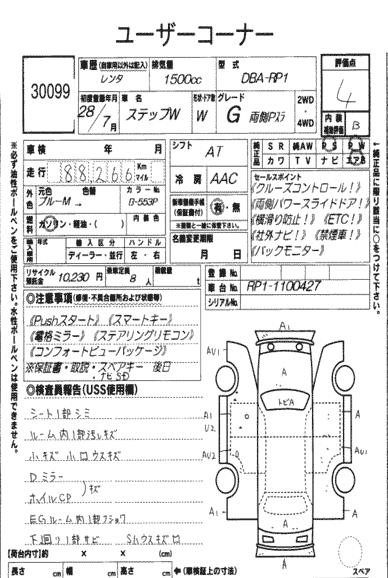 ユーザーコーナー
30099
車歴(自家用以外は記入) 排気量 型式
レンタ 1500cc DBA-RP1
初度登録年月 車名 形状・ドア数 グレード 2WD
28/7月 ステップW W G 両側Pスラ ・4WD
評価点
4
内装補助評価 B
車検 年 月
走行 88266 Km マイル
シフト AT
冷房 AAC
純正品 SR 純AW PS PW
カワ TV ナビ エアB
外装色 元色 色替 カラーNo.
ブルーM→ B-553P
燃料 ガソリン・軽油・( ) 内装色
輸入車 年式 輸入区分 ハンドル
ディーラー・並行 左・右
リサイクル預託金 10,230円 乗車定員 8人 積載量 t
新車整備手帳(保証書付) 有・無
名義変更期限 月 日
セールスポイント
《クルーズコントロール!》
《両側パワースライドドア!》
《横滑り防止!》《ETC!》
《社外ナビ!》《禁煙車!》
《バックモニター》
登録No.
車台No. RP1-1100427
シリアルNo.
※必ず油性ボールペンをご使用下さい。水性ボールペンは使用できません。
←純正品に限り該当に○をつけて下さい。
◎注意事項(修復・不具合個所および状態等)
《Pushスタート》《スマートキー》
《電格ミラー》《ステアリングリモコン》
《コンフォートビューパッケージ》
※保証書・取説・スペアキー 後日
・ナビSD
◎検査員報告(USS使用欄)
シート1部シミ
ルーム内1部汚レキズ
小キズ 小ロウスキズ
Dミラー
ホイルCP )キズ
EGルーム内1部フショク
下廻り1部サビ
【荷台内寸】 × × (cm)
長さ cm 幅 cm 高さ cm ←(車検証上の寸法)
A1
AU1
A
A1
U2
AU2
A
トビA
A
A1
A
AU1
A
A
A1
スペア